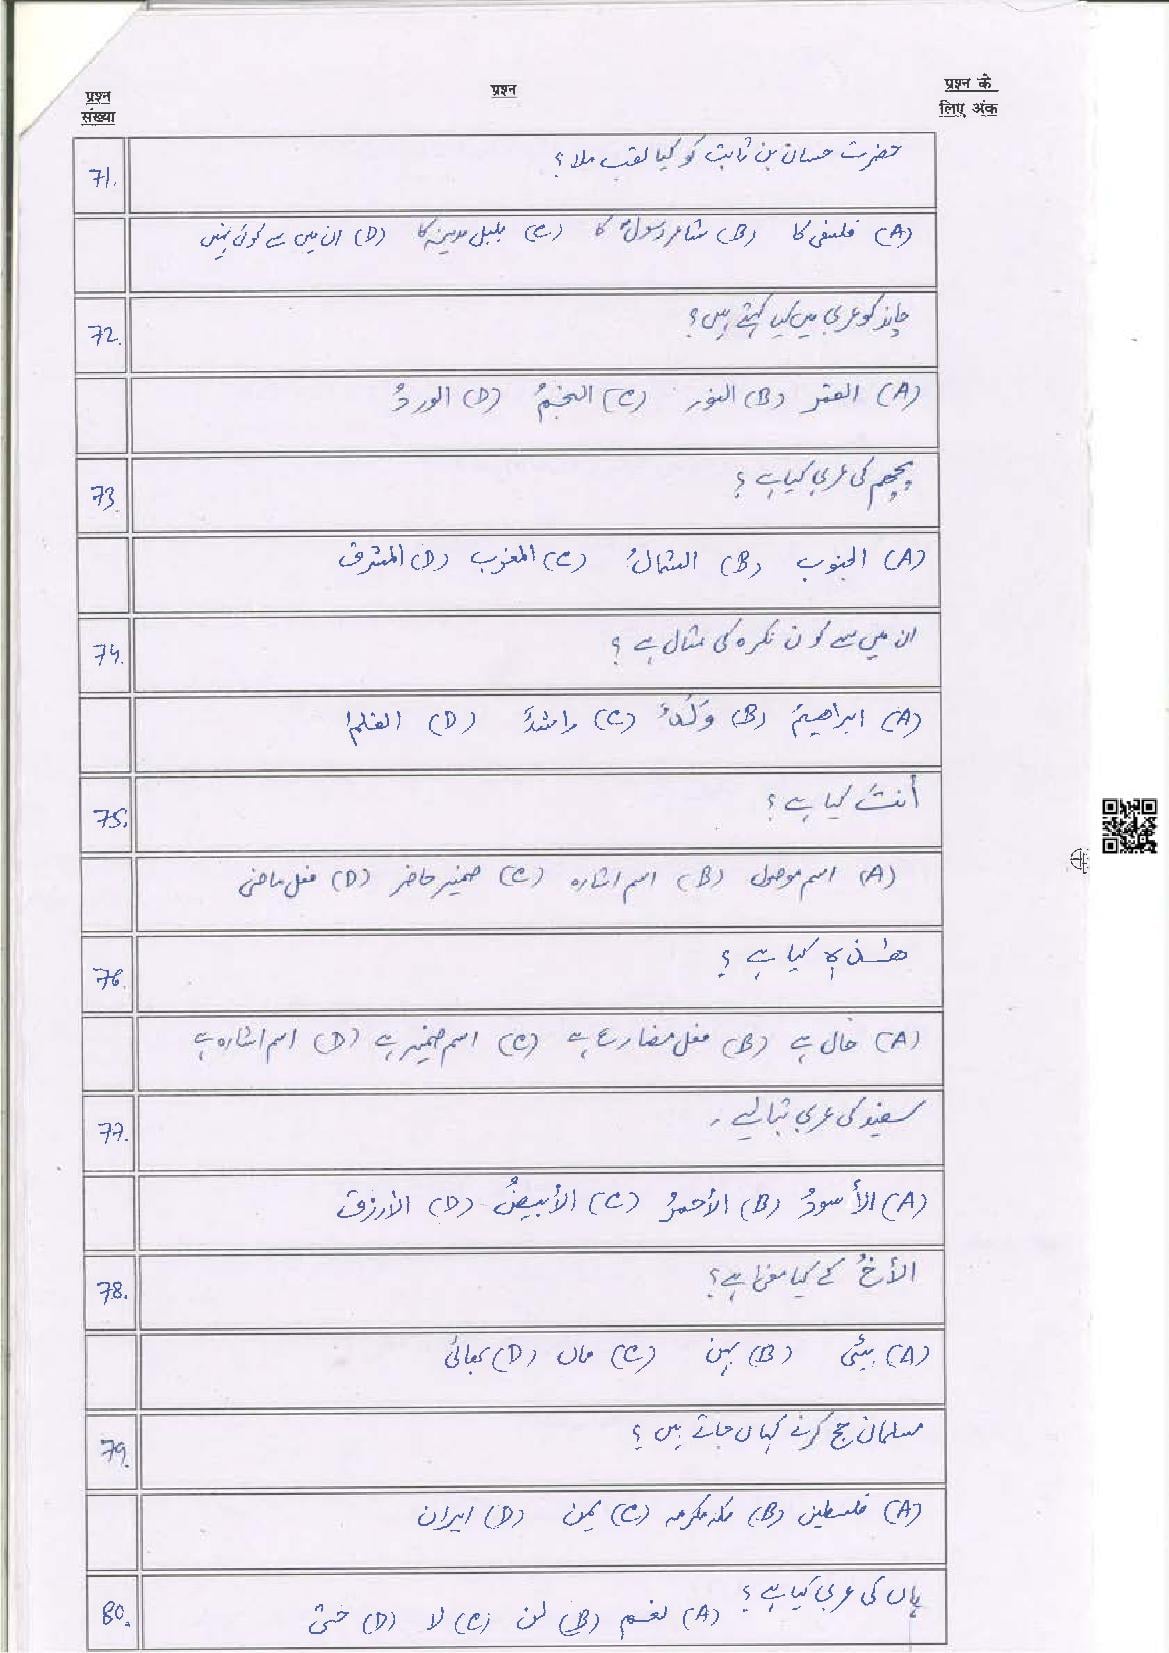 प्रश्न संख्या
प्रश्न
प्रश्न के लिए अंक
71. حضرت حسان بن ثابت کو کیا لقب ملا؟
(A) فلسفی کا (B) شاعر رسولؐ کا (C) بلبل مدینہ کا (D) ان میں سے کوئی نہیں
72. چاند کو عربی میں کیا کہتے ہیں؟
(A) القمر (B) النور (C) النجمُ (D) الوردُ
73. پچھم کی عربی کیا ہے؟
(A) الجنوب (B) الشمالُ (C) المغرب (D) المشرق
74. ان میں سے کون نکرہ کی مثال ہے؟
(A) ابراھیمُ (B) وَلَدٌ (C) راشدٌ (D) القلمُ
75. أنتَ کیا ہے؟
(A) اسم موصول (B) اسم اشارہ (C) ضمیر حاضر (D) فعل ماضی
76. ھٰذہٖ کیا ہے؟
(A) حال ہے (B) فعل مضارع ہے (C) اسم ضمیر ہے (D) اسم اشارہ ہے
77. سفید کی عربی بتائیے۔
(A) الأسودُ (B) الأحمرُ (C) الأبيضُ (D) الأزرق
78. الأخُ کے کیا معنیٰ ہے؟
(A) بیٹی (B) بہن (C) ماں (D) بھائی
79. مسلمان حج کرنے کہاں جاتے ہیں؟
(A) فلسطین (B) مکہ مکرمہ (C) یمن (D) ایران
80. ہاں کی عربی کیا ہے؟ (A) نعم (B) لن (C) لا (D) حتیٰ